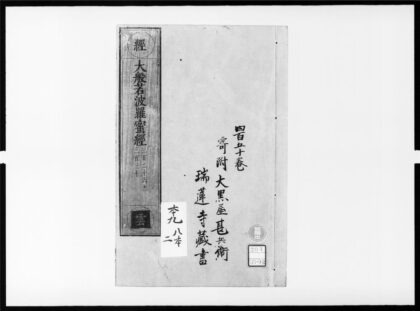 四百五十巻
寄附 大黒屋甚兵衛
瑞蓮寺蔵書
經
大般若波羅蜜經
雲
六九 八本
二